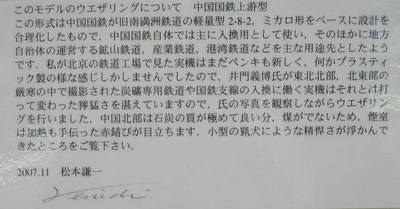 このモデルのウエザリングについて　中国国鉄上游型
この形式は中国国鉄が旧南満洲鉄道の軽量型 2-8-2，ミカロ形をベースに設計を
合理化したもので、中国国鉄自体では主に入換用として使い，そのほかに地方
自治体の運営する鉱山鉄道，産業鉄道，港湾鉄道などを主な用途先としたよう
です．私が北京の鉄道工場で見た実機はまだペンキも新しく，何かプラスティ
ック製の様な感じしかしませんでしたので，井門義博氏が東北北部，北東部の
厳寒の中で撮影された炭礦専用鉄道や国鉄支線の入換に働く実機はそれとは打
って変わった獰猛さを湛えていますので，氏の写真を観察しながらウエザリン
グを行いました．中国北部は石炭の質が極めて良い分，煤がでないため，煙室
は加熱も手伝った赤錆びが目立ちます．小型の猟犬にような精悍さが浮かんで
きたところをご覧下さい．
2007.11　松本謙一